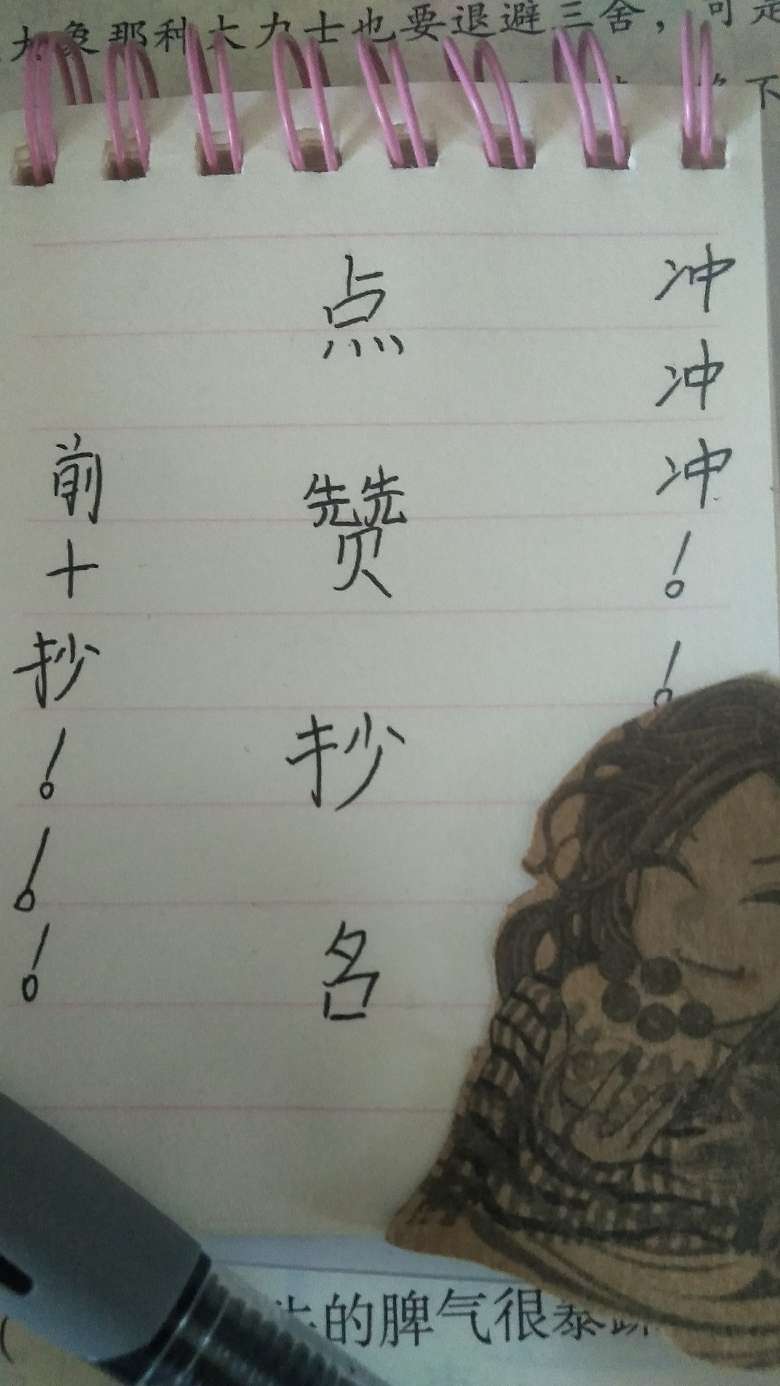 象那种大力士也要退避三舍，可是
下
冲冲冲！！
点赞抄名
前十抄！！！
的脾气很暴